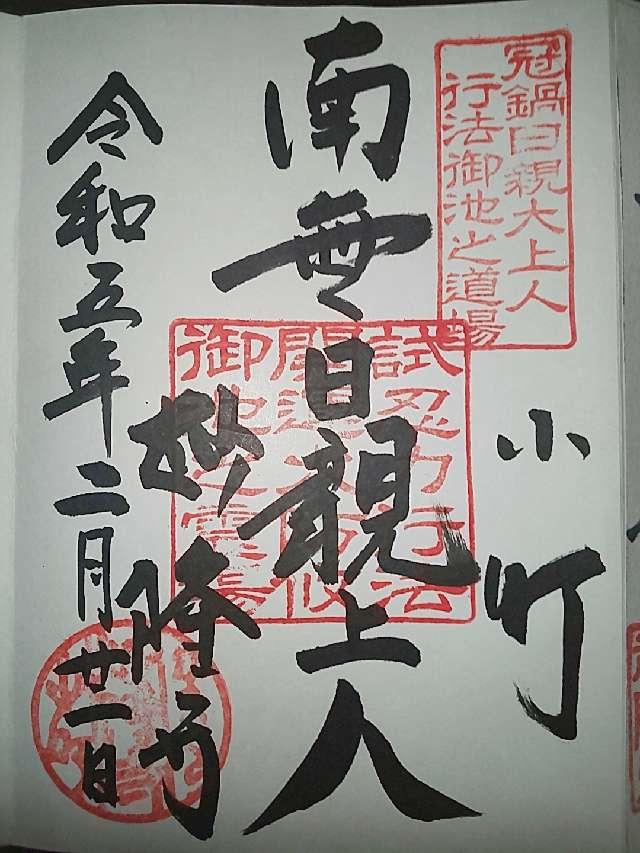 冠鍋日親大上人
行法御池之道場
小町
南無日親上人
試忍力行法
御池之霊
妙隆寺
令和五年二月廿一日